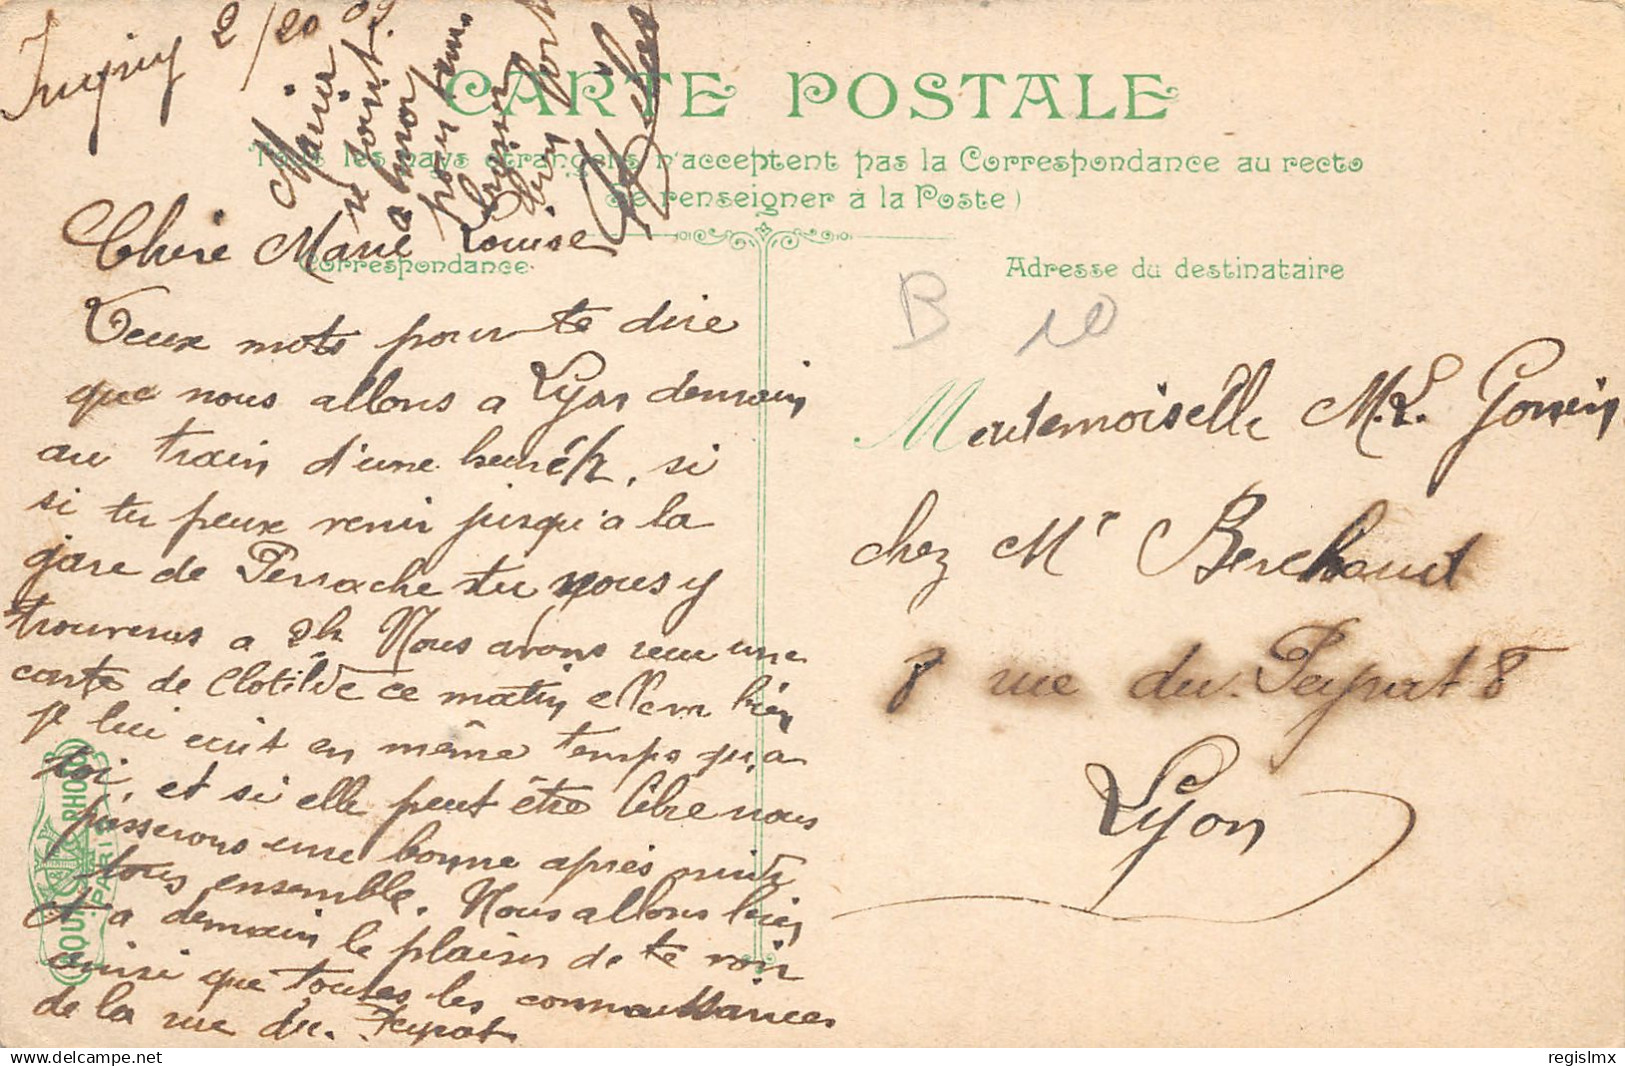 2/20 09
Marie
se joint
a moi
pour
bien fort
CARTE POSTALE
Tous les pays étrangers n'acceptent pas la Correspondance au recto
Se renseigner à la Poste)
Chère Marie Louise
Correspondance
Adresse du destinataire
B 10
Deux mots pour te dire
que nous allons a Lyon demain
au train d'une heure ½, si
si tu peux venir jusqu'a la
gare de Perrache tu nous y
trouveras a 2h Nous avons reçu une
carte de Clotilde ce matin
je lui écrit en même temps qu'a
toi, et si elle peut être libre nous
passerons une bonne après midi
tous ensemble. Nous allons bien
et a demain le plaisir de te voir
ainsi que toutes les connaissances
de la rue du Peyrat
Mademoiselle M.L. Gonin
chez Mr Berchoud
8 rue du Peyrat 8
Lyon
PARIS
regislmx
delcampe.net